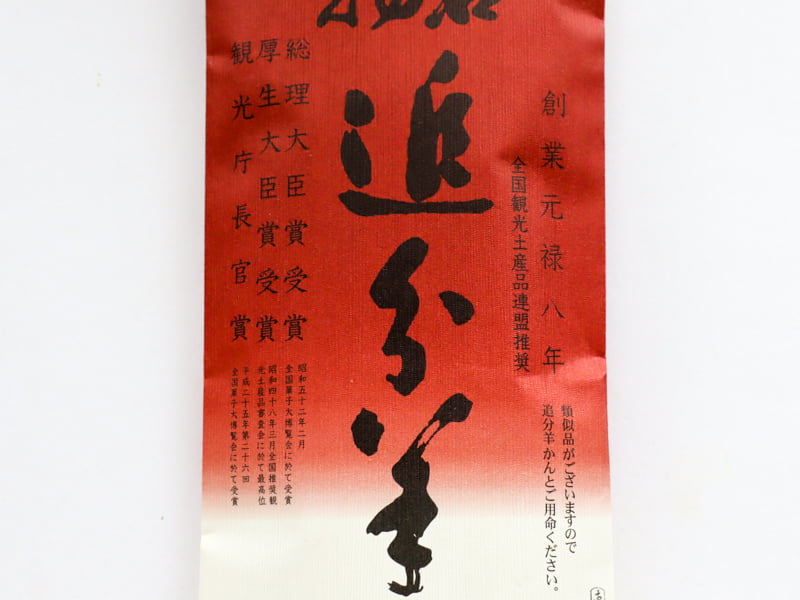 創業元禄八年
類似品がございますので
追分羊かんとご用命ください。
全国観光土産品連盟推奨
追分羊
総理大臣賞受賞
昭和五十二年二月
全国菓子大博覧会に於て受賞
厚生大臣賞受賞
昭和四十八年三月全国推奨観
光土産品審査会に於て最高位
観光庁長官賞
平成二十五年第二十六回
全国菓子大博覧会に於て受賞